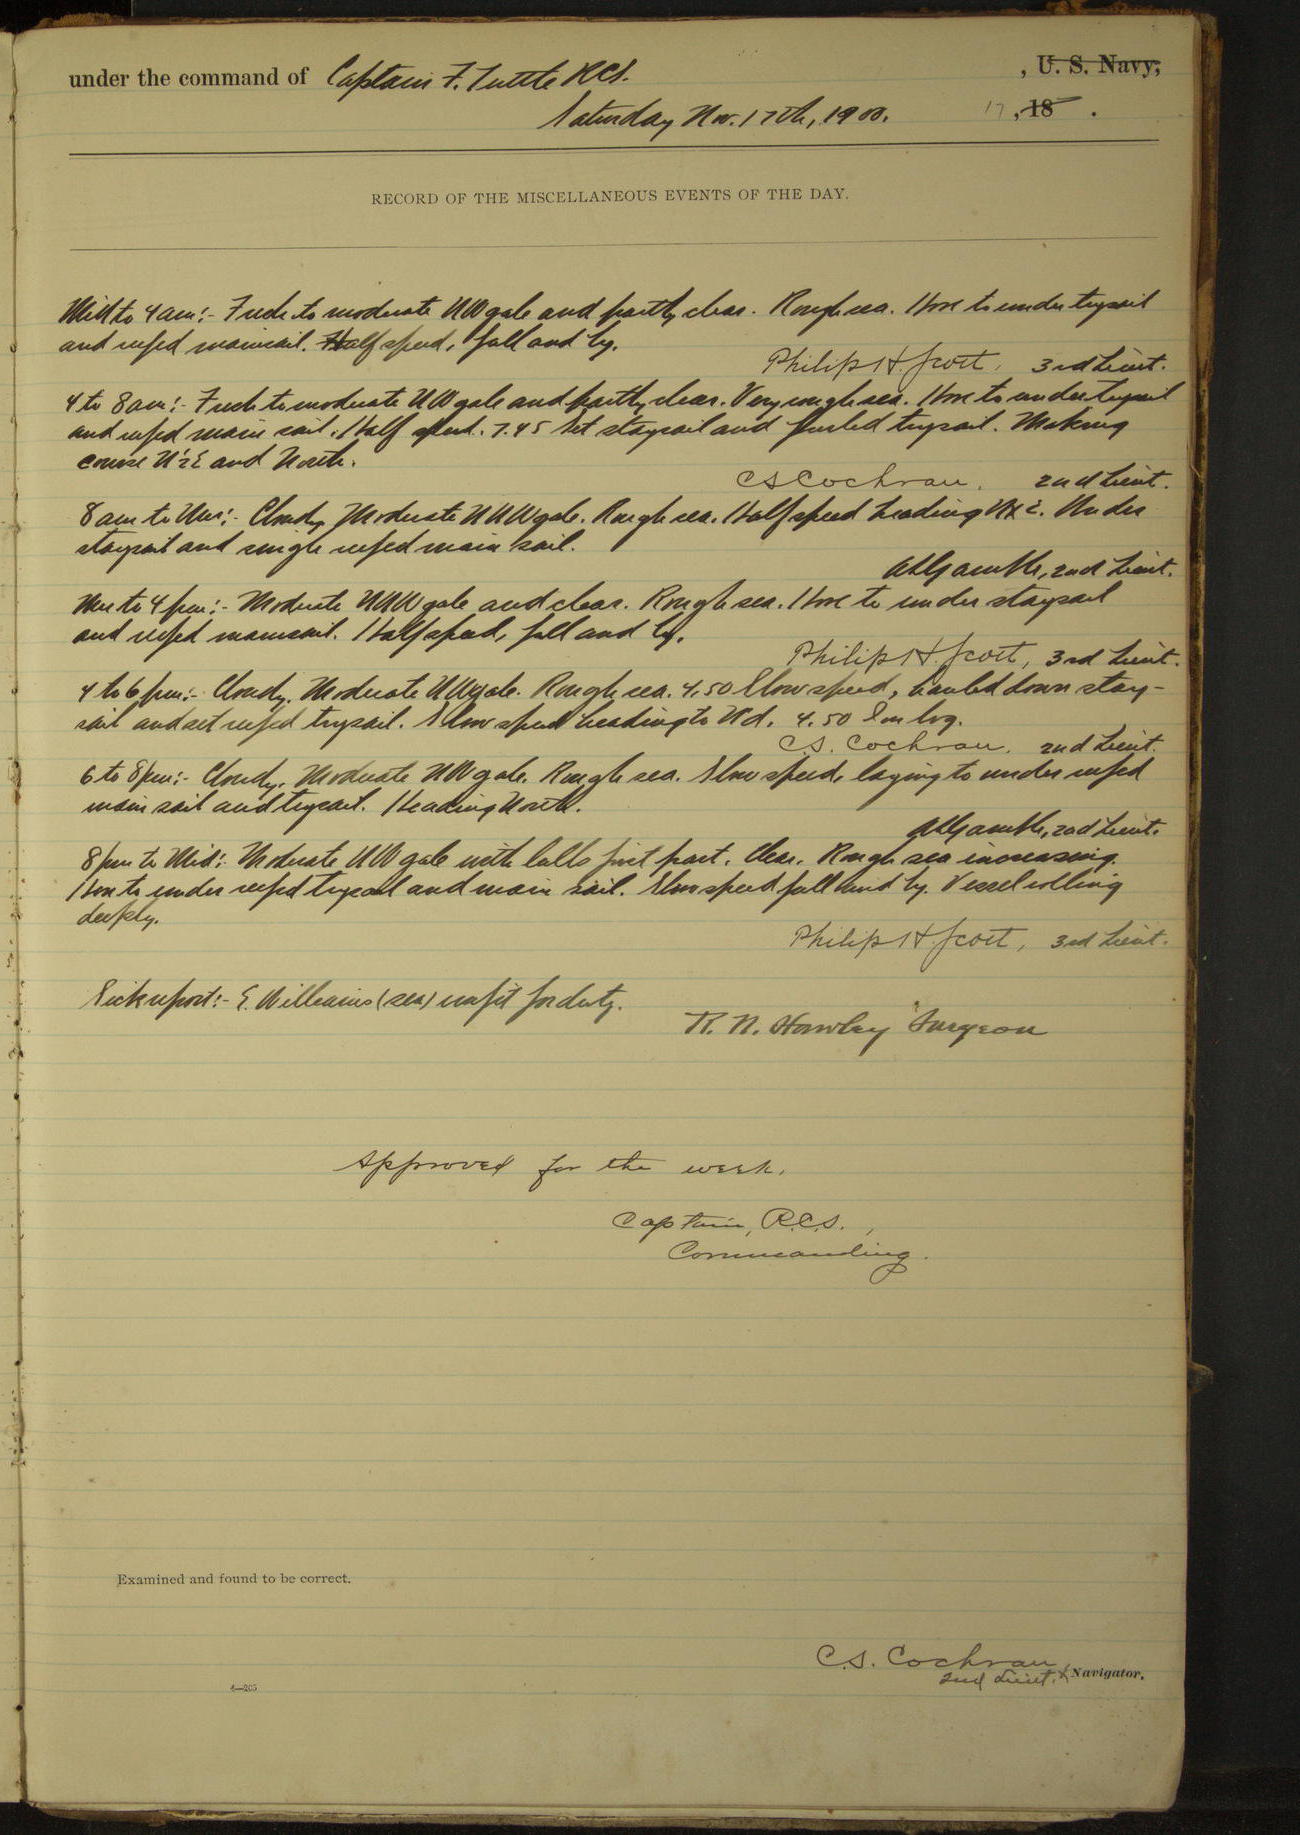 under the command of Captain F. Tuttle RCS. , U. S. Navy,
Saturday Nov. 17th, 1900. 17 , 18 .
RECORD OF THE MISCELLANEOUS EVENTS OF THE DAY.
Mid to 4 am:- Fresh to moderate NW gale and partly clear. Rough sea. Hove to under trysail
and reefed mainsail. Half speed, full and by.
Philip H. Scott, 3rd Lieut.
4 to 8 am:- Fresh to moderate NW gale and partly clear. Very rough sea. Hove to under trysail
and reefed main sail. Half speed. 7.45 Set staysail and furled trysail. Making
course N½E and North.
C S Cochran. 2nd Lieut.
8 am to Mer:- Cloudy. Moderate NNW gale. Rough sea. Half speed heading Under
staysail and single reefed main sail.
A L Gamble, 2nd Lieut.
Mer to 4 pm:- Moderate NNW gale and clear. Rough sea. Hove to under staysail
and reefed mainsail. Half speed, full and by.
Philip H. Scott, 3rd Lieut.
4 to 6 pm:- Cloudy. Moderate NW gale. Rough sea. 4.50 Slow speed, hauled down stay-
sail and set reefed trysail. Slow speed heading to N'd. 4.50 In log.
C.S. Cochran. 2nd Lieut.
6 to 8 pm:- Cloudy. Moderate NW gale. Rough sea. Slow speed, laying to under reefed
main sail and trysail. Heading North.
A L Gamble, 2nd Lieut.
8 pm to Mid:- Moderate NW gale with lulls first part. Clear. Rough sea increasing.
Hove to under reefed trysail and main sail. Slow speed full and by. Vessel rolling
deeply.
Philip H. Scott, 3rd Lieut.
Sick report:- E. Williams (sea) unfit for duty.
R. N. Hawley Surgeon
Approved for the week.
Captain, R.C.S.,
Commanding.
Examined and found to be correct.
C.S. Cochran,
2nd Lieut. & Navigator.
4—205